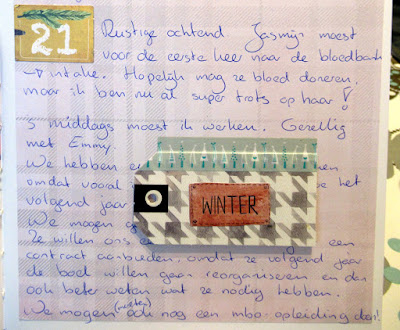 21
Rustige ochtend Jasmijn moest
voor de eerste keer naar de bloedbank
→ intake. Hopelijk mag ze bloed doneren,
maar ik ben nu al super trots op haar!
's middags moest ik werken. Gezellig
met Emmy.
We hebben
omdat vooral het
volgend jaar
WINTER
We mogen
Ze willen ons een
contract aanbieden, omdat ze volgend jaar
de boel willen gaan reorganiseren en dan
ook beter weten wat ze nodig hebben.
We mogen (moeten) ook nog een mbo opleiding doen!